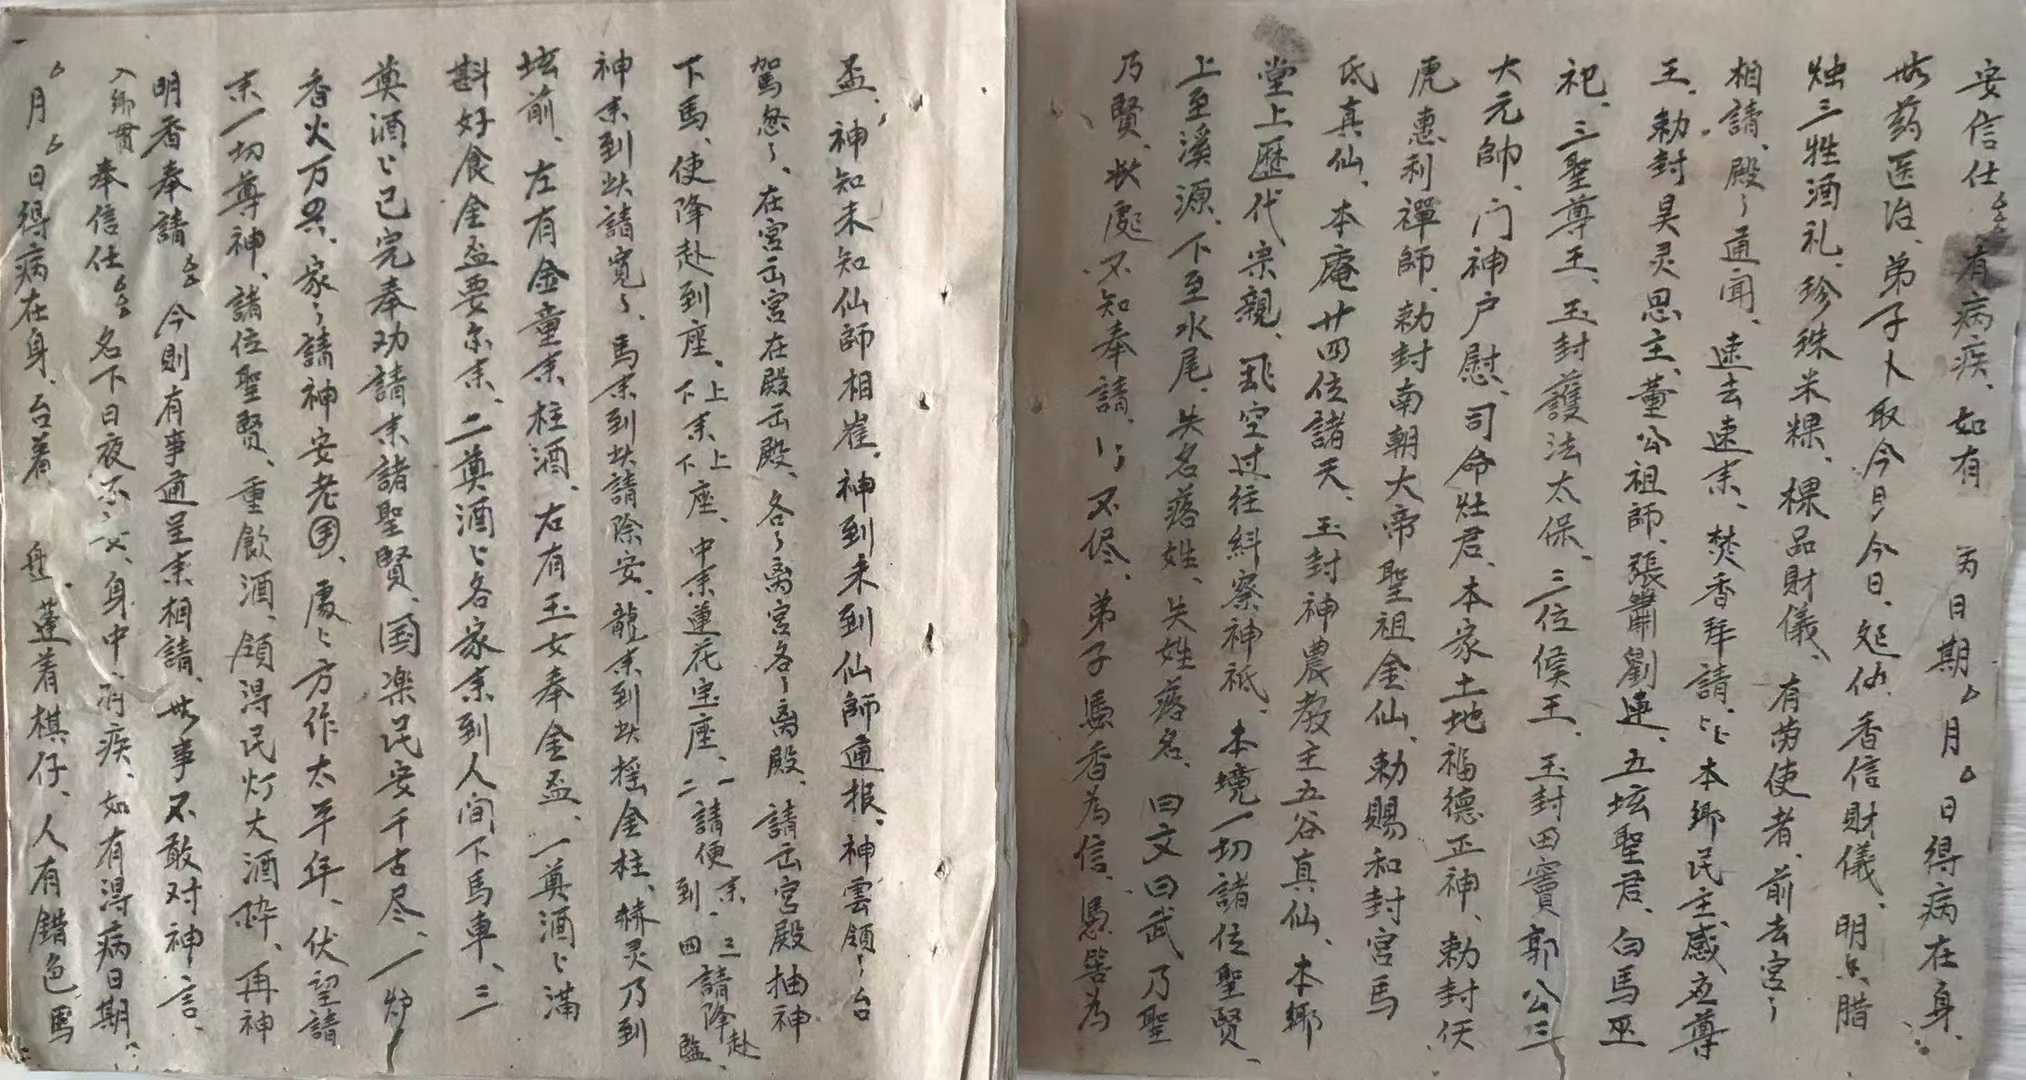 安信仕厶厶、有病疾、如有 丙日期、厶月、厶日得病在身、
世药医治、弟子卜取今月今日、起仙、香信財儀、明点腊
烛三牲酒礼、珍珠米粿、粿品財儀、有劳使者、前去宮〻
相請、殿〻通闻、速去速来、焚香拜請、〻〻本鄉民主、感应尊
王、勅封昊灵思主、董公祖師、張蕭劉連、五坛聖君、白馬巫
祀、三聖尊王、玉封護法太保、三位侯王、玉封田竇郭公三
大元帥、门神户慰、司命灶君、本家土地福德正神、勅封伏
虎惠利禪師、勅封南朝大帝聖祖金仙、勅賜和封宮馬
氏真仙、本庵廿四位諸天、玉封神農教主五谷真仙、本鄉
堂上歷代宗親、虚空过往糾察神祗、本境一切諸位聖賢、
上至溪源、下至水尾、失名落姓、失姓落名、曰文曰武乃聖
乃賢、状處不知奉請、〻〻不尽、弟子馮香為信、馮筶為
盃、神知未知仙師相崔、神到未到仙師通报、神雲領〻台
駕怱〻、在宮岳宮在殿岳殿、各〻离宮各〻离殿、請岳宮殿抽神
下馬、使降赴到座、上来上座、下来下座、中来蓮花宝座、一請便来、二請便到、三請降赴、四請降臨、
神来到状請寬〻、馬来到状請除安、龍来到状摇金柱、赫灵乃到
坛前、左有金童来柱酒、右有玉女奉金盃、一奠酒〻滿
斟好食金盃要尔来、二奠酒〻各家来到人间下馬車、三
奠酒〻已完奉劝請来諸聖賢、国楽民安千古尽、一炉
香火万兴、家〻請神安老国、處〻方作太平年、伏望請
来一切尊神、諸位聖賢、重飲酒、領得民灯大酒醉、再神
明香奉請、厶厶今則有事通呈来相請、世事不敢对神言、
入鄉貫 奉信仕厶厶名下日夜不安、身中病疾、如有得病日期、
厶月、厶日得病在身、台着 船、蓬着棋仔、人有錯色馬